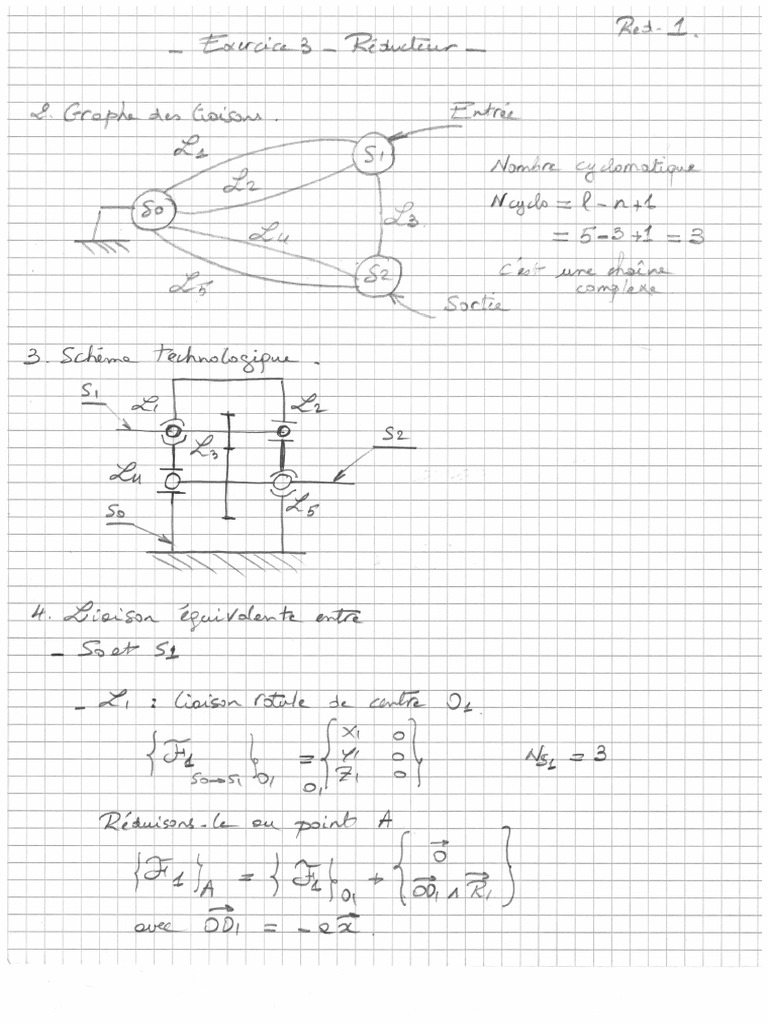 Red-1.
- Exercice 3 - Réducteur -
2. Graphe des liaisons.
Entrée
L1
S1
L2
Nombre cyclomatique
S0
L3
Ncyclo = l - n + 1
L4
= 5 - 3 + 1 = 3
S2
L5
c'est une chaîne
complexe
Sortie
3. Schéma technologique.
S1
L1
L2
L3
S2
L4
S0
L5
4. Liaison équivalente entre
- S0 et S1
- L1 : liaison rotule de centre O1
{F1 S0→S1}O1 = O1{X1 0
Y1 0
Z1 0}
NS1 = 3
Réduisons-le au point A
{F1}A = {F1}O1 + {0
OO1 ∧ R1}
avec OO1 = -a x.